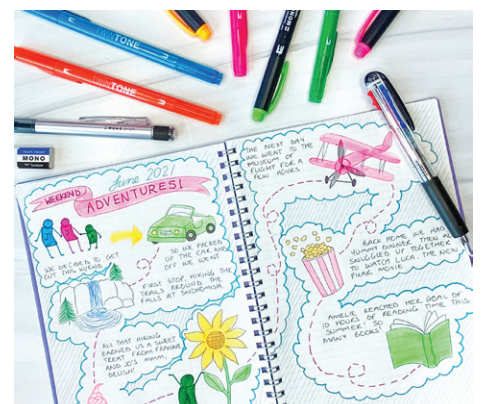 TWINTONE
TWINTONE
MONO
MONO
MONO
June 2021
WEEKEND
ADVENTURES!
WE DECIDED TO GET
OUT THIS W/END
SO WE PACKED
UP THE CAR AND
OFF WE WENT
FIRST STOP, HIKING THE
TRAILS AROUND THE
FALLS AT SNOHOMISH.
ALL THAT HIKING
EARNED US A SWEET
TREAT FROM FRANKIE
AND JO'S. MMM,
DELISH!
THE NEXT DAY
WE WENT TO THE
MUSEUM OF
FLIGHT FOR A
FEW HOURS
BACK HOME WE HAD
YUMMY DINNER. THEN ALL
SNUGGLED UP TOGETHER
TO WATCH LUCA, THE NEW
PIXAR MOVIE
AMELIE REACHED HER GOAL OF
10 HOURS OF READING TIME THIS
SUMMER! SO
MANY BOOKS!